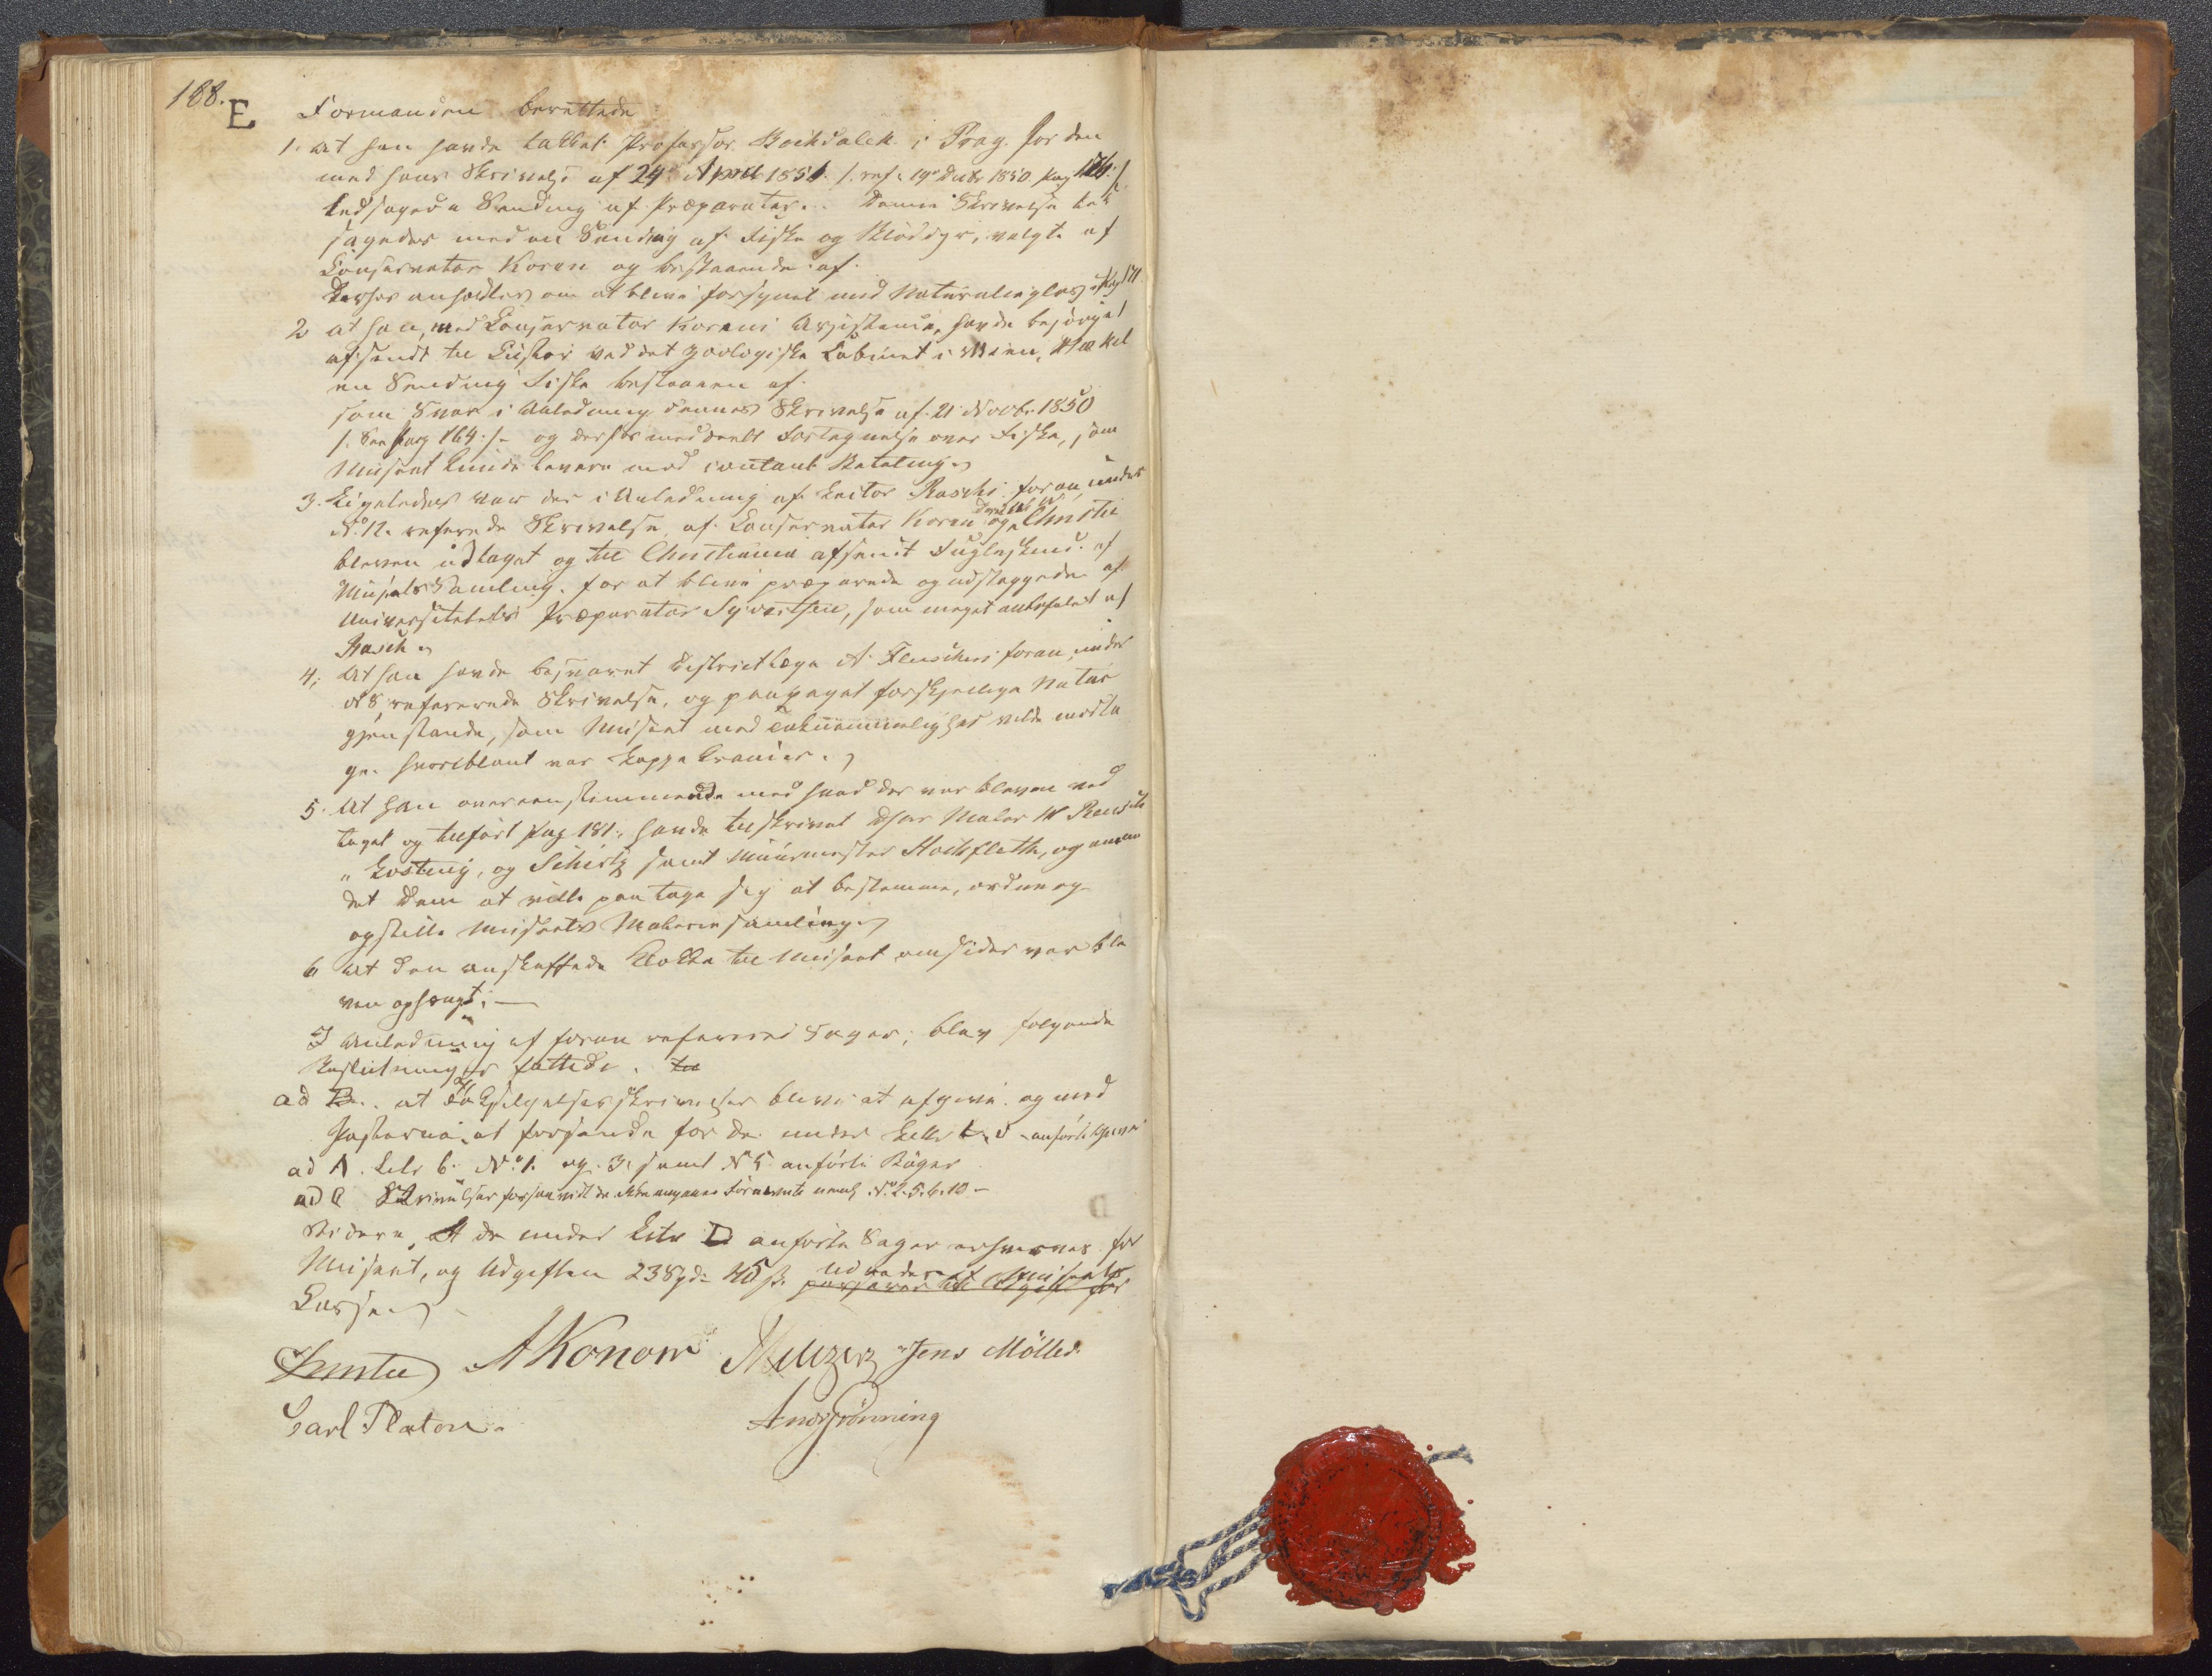 188.
E Formanden berettede
1. at han havde takket Professor Bochdalek i Prag for den
med hans Skrivelse af 24 April 1851 /: ref: 19de Decbr 1850 pag 176 :/
ledsagede Sending af Præparater. Denne Skrivelse led
sagedes med en Sending af Fiske og Bløddyr, valgte af
Conservator Koren og bestaaende af
Derhos anholdtes om at blive forsynet med Naturalieglas Pag 171
2 at han, med Conservator Korens Assistence, havde besørget
afsendt til Custos ved det zoologiske Cabinet i Wien, Hækel
en Sending Fiske bestaaen af
som Svar i Anledning dennes Skrivelse af 21 Novbr 1850
/: See Pag 164 :/ og derhos meddeelt Fortegnelse over Fiske, som
Museet kunde levere mod contant Betaling.
3. Ligeledes var der i Anledning af Lector Raschs foran under
No 12 referede Skrivelse af Conservator Koren og Christie
bleven udtaget og til Christiania afsendt Fugleskind af
Musæets Samling, for at blive præparede og udstoppede af
Universitetets Præparator Syvertsen, som meget anbefalet af
Rasch.
4; At han havde besvaret Districtlæge A. Fleischers foran under
No 8 refererede Skrivelse, og paapeget forskjellige Natur
gjenstande, som Museet med Erkjendtlighed vilde modta
ge. hvoriblant var Lappe Cranier.
5. At han overeenstemmende med hvad der var bleven ved
taget og tilført Pag 181, havde tilskrevet DHrr Maler
Losting, og Schirtz samt Muurmester Hochfleth, og anmo
det dem at ville paatage sig at bestemme, ordne og
opstille Museets Malerie samling.
6 At den anskaffede Klokke til Museet omsider var ble
ven ophængt. —
I Anledning af foran refererede Sager, blev følgende
Beslutninger fattede.
ad B. at Taksigelsesskrivelser blive at afgive og med
Posterne at forsende for de under Litr anførte Gaver
ad A. Litr b. No 1. og 3, samt No 5 anførte Bøger
ad C Skrivelser No 2. 5. 6. 10 —
Videre, At de under Litr D anførte Sager erhverves for
Museet, og Udgiften 23 Spd 45 ß. udredes af Museets
Casse.
Christie AKonow Meltzer Jens Möller
Carl Platou. And Grønning